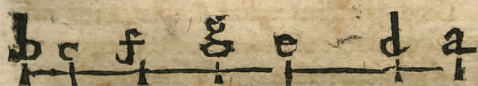 b c f g e d a